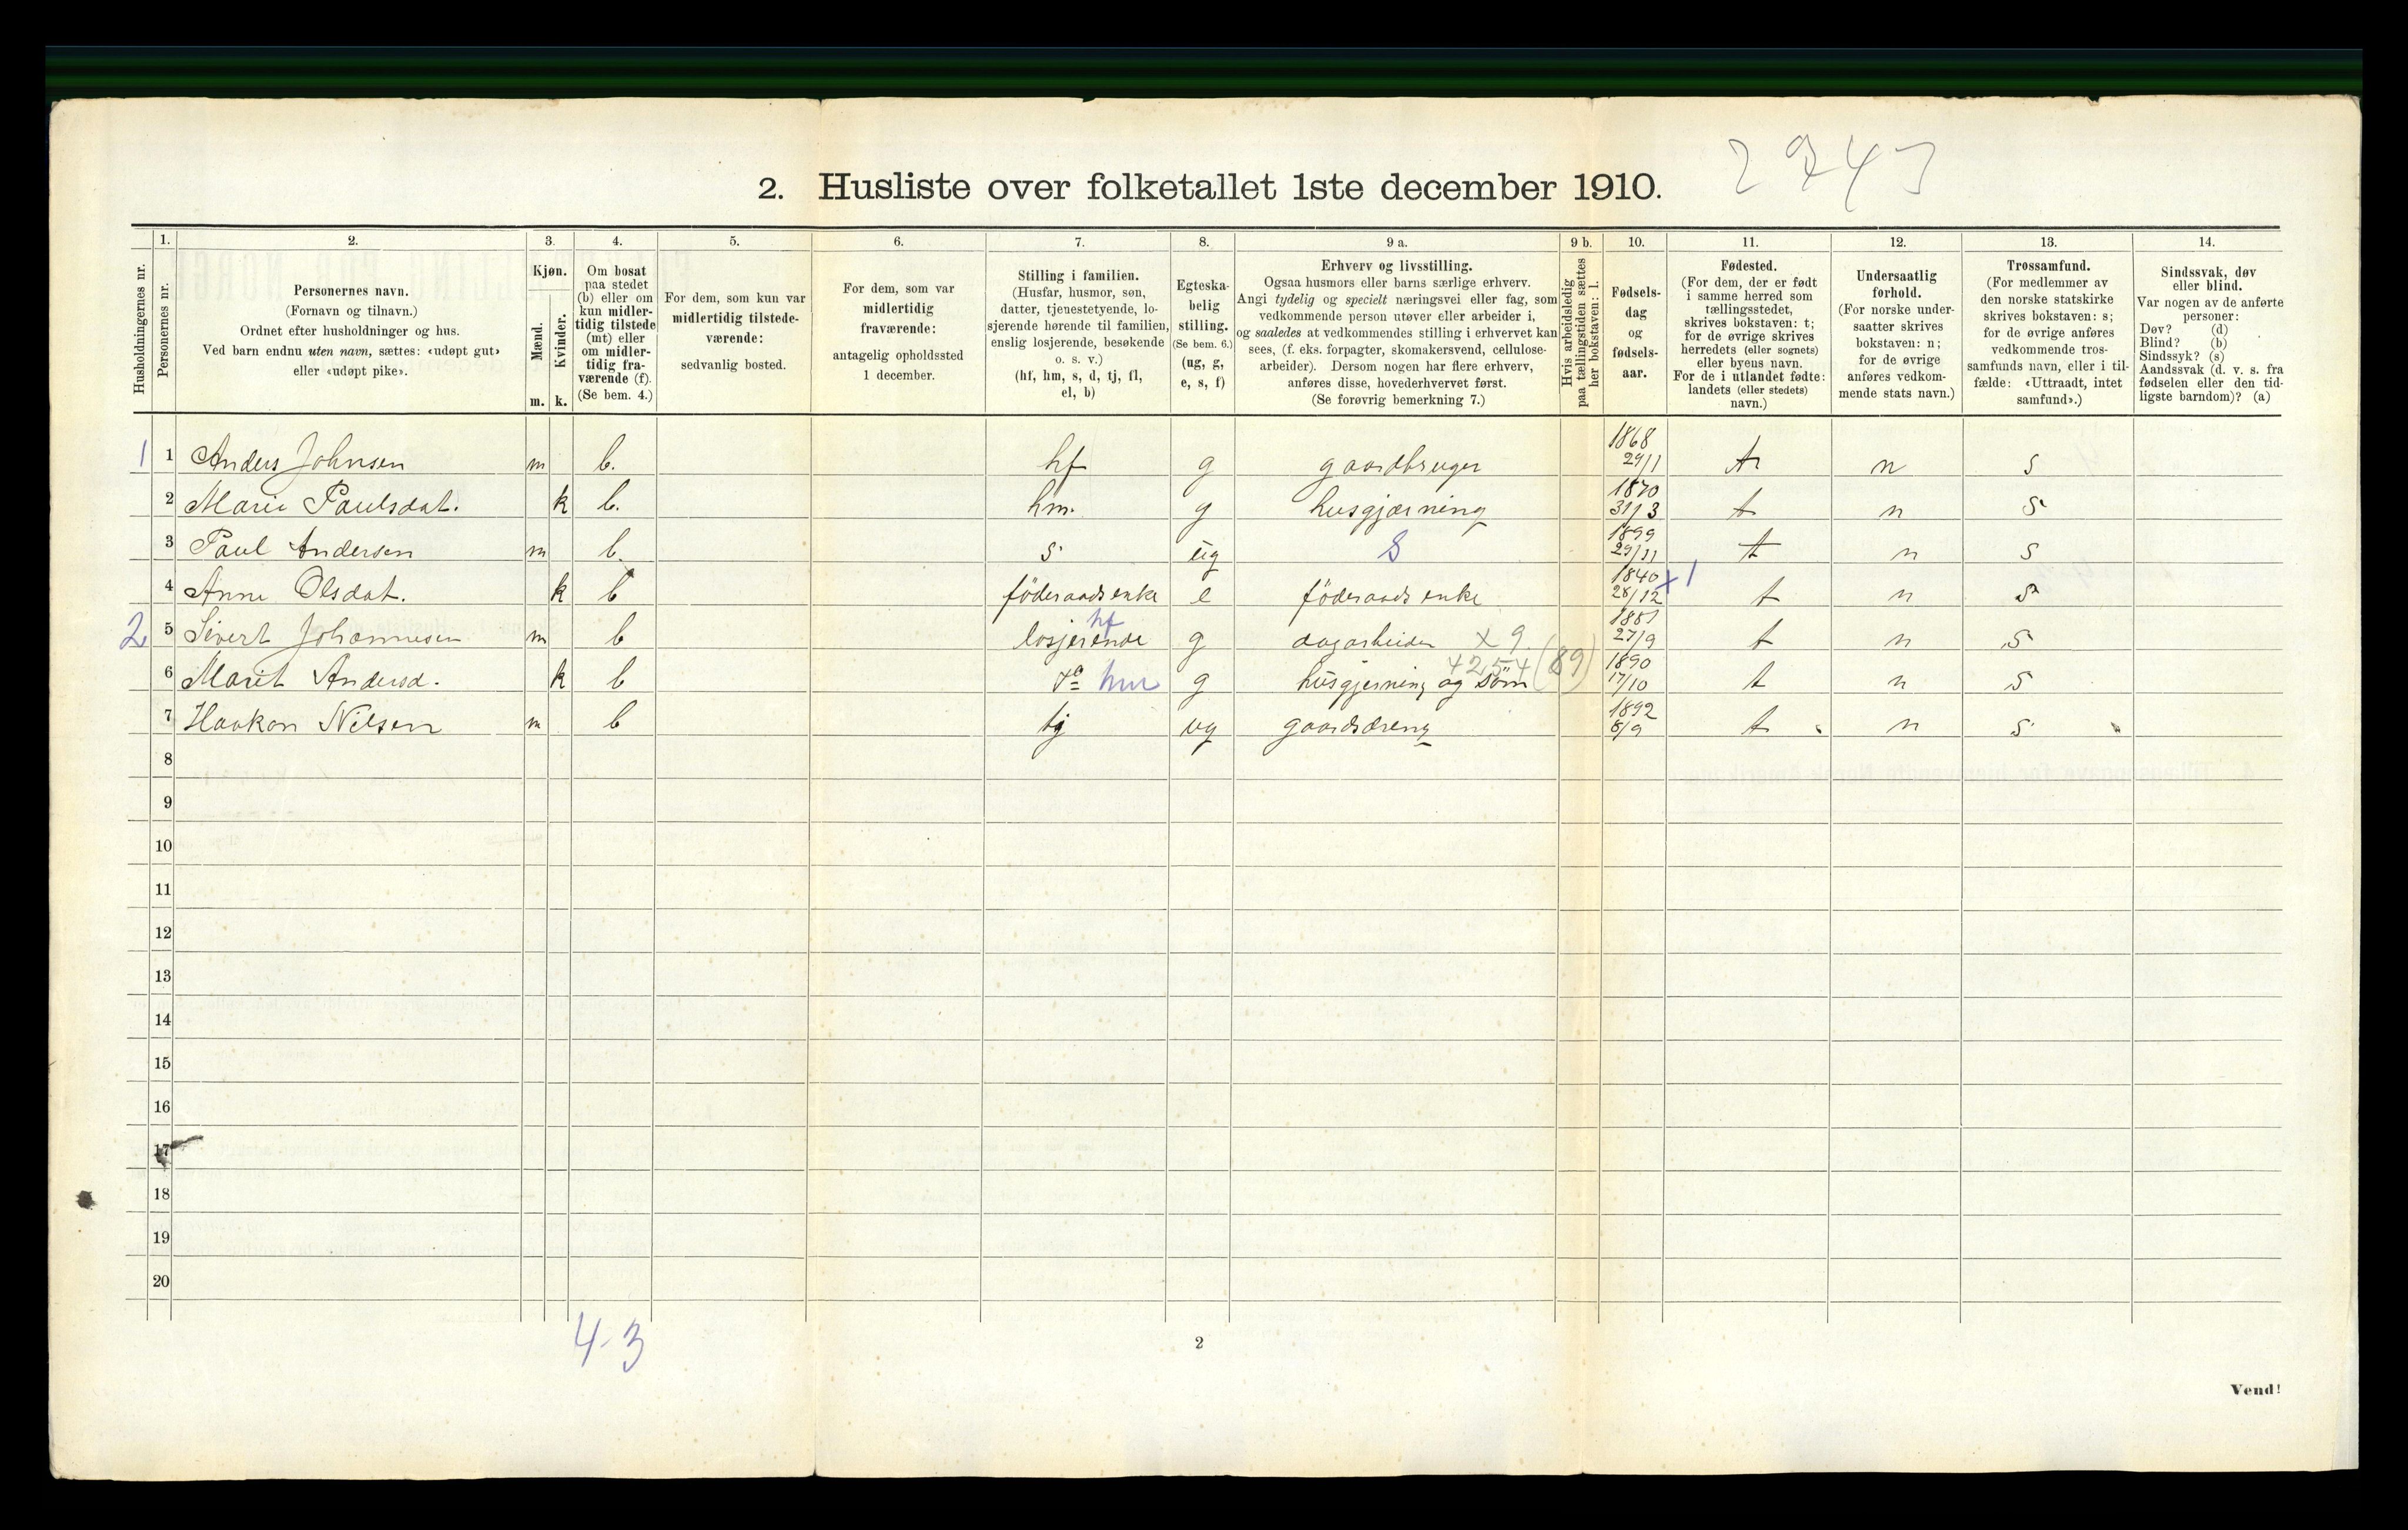 2743
2. Husliste over folketallet 1ste december 1910.
Husholdningernes nr.
1. Personernes nr.
2. Personernes navn.
(Fornavn og tilnavn.)
Ordnet efter husholdninger og hus.
Ved barn endnu uten navn, sættes: «udøpt gut»
eller «udøpt pike».
3. Kjøn.
Mænd. m.
Kvinder. k.
4. Om bosat
paa stedet
(b) eller om
kun midler-
tidig tilstede
(mt) eller
om midler-
tidig fra-
værende (f).
(Se bem. 4.)
5. For dem, som kun var
midlertidig tilstede-
værende:
sedvanlig bosted.
6. For dem, som var
midlertidig
fraværende:
antagelig opholdssted
1 december.
7. Stilling i familien.
(Husfar, husmor, søn,
datter, tjenestetyende, lo-
sjerende hørende til familien,
enslig losjerende, besøkende
o. s. v.)
(hf, hm, s, d, tj, fl,
el, b)
8. Egteska-
belig
stilling.
(Se bem. 6.)
(ug, g,
e, s, f)
9 a. Erhverv og livsstilling.
Ogsaa husmors eller barns særlige erhverv.
Angi tydelig og specielt næringsvei eller fag, som
vedkommende person utøver eller arbeider i,
og saaledes at vedkommendes stilling i erhvervet kan
sees, (f. eks. forpagter, skomakersvend, cellulose-
arbeider). Dersom nogen har flere erhverv,
anføres disse, hovederhvervet først.
(Se forøvrig bemerkning 7.)
9 b. Hvis arbeidsledig
paa tællingstiden sættes
her bokstaven: l.
10. Fødsels-
dag
og
fødsels-
aar.
11. Fødested.
(For dem, der er født
i samme herred som
tællingsstedet,
skrives bokstaven: t;
for de øvrige skrives
herredets (eller sognets)
eller byens navn.
For de i utlandet fødte:
landets (eller stedets)
navn.)
12. Undersaatlig
forhold.
(For norske under-
saatter skrives
bokstaven: n;
for de øvrige
anføres vedkom-
mende stats navn.)
13. Trossamfund.
(For medlemmer av
den norske statskirke
skrives bokstaven: s;
for de øvrige anføres
vedkommende tros-
samfunds navn, eller i til-
fælde: «Uttraadt, intet
samfund».)
14. Sindssvak, døv
eller blind.
Var nogen av de anførte
personer:
Døv? (d)
Blind? (b)
Sindssyk? (s)
Aandssvak (d. v. s. fra
fødselen eller den tid-
ligste barndom)? (a)
1 1 Anders Johnsen m b. hf g gaardbruger 1868 29/11 t n s
2 Marie Paulsdat. k b. hm. g husgjærning 1870 31/3 t n s
3 Paul Andersen m b. s ug S 1899 29/11 t n s
4 Anne Olsdat. k b föderaadsenke e föderaads enke 1840 28/12 x1 t n s
2 5 Sivert Johannesen m b losjerende hf g dagarbeider x 9 27/9 t n s
6 Marit Andersd. k b do hm g husgjerning og söm 4254 (89) 1890 17/10 t n s
7 Haakon Nilsen m b tj ug gaardsdreng 1892 8/9 t n s
8
9
10
11
12
13
14
15
16
17
18
19
20
4-3
2
Vend!